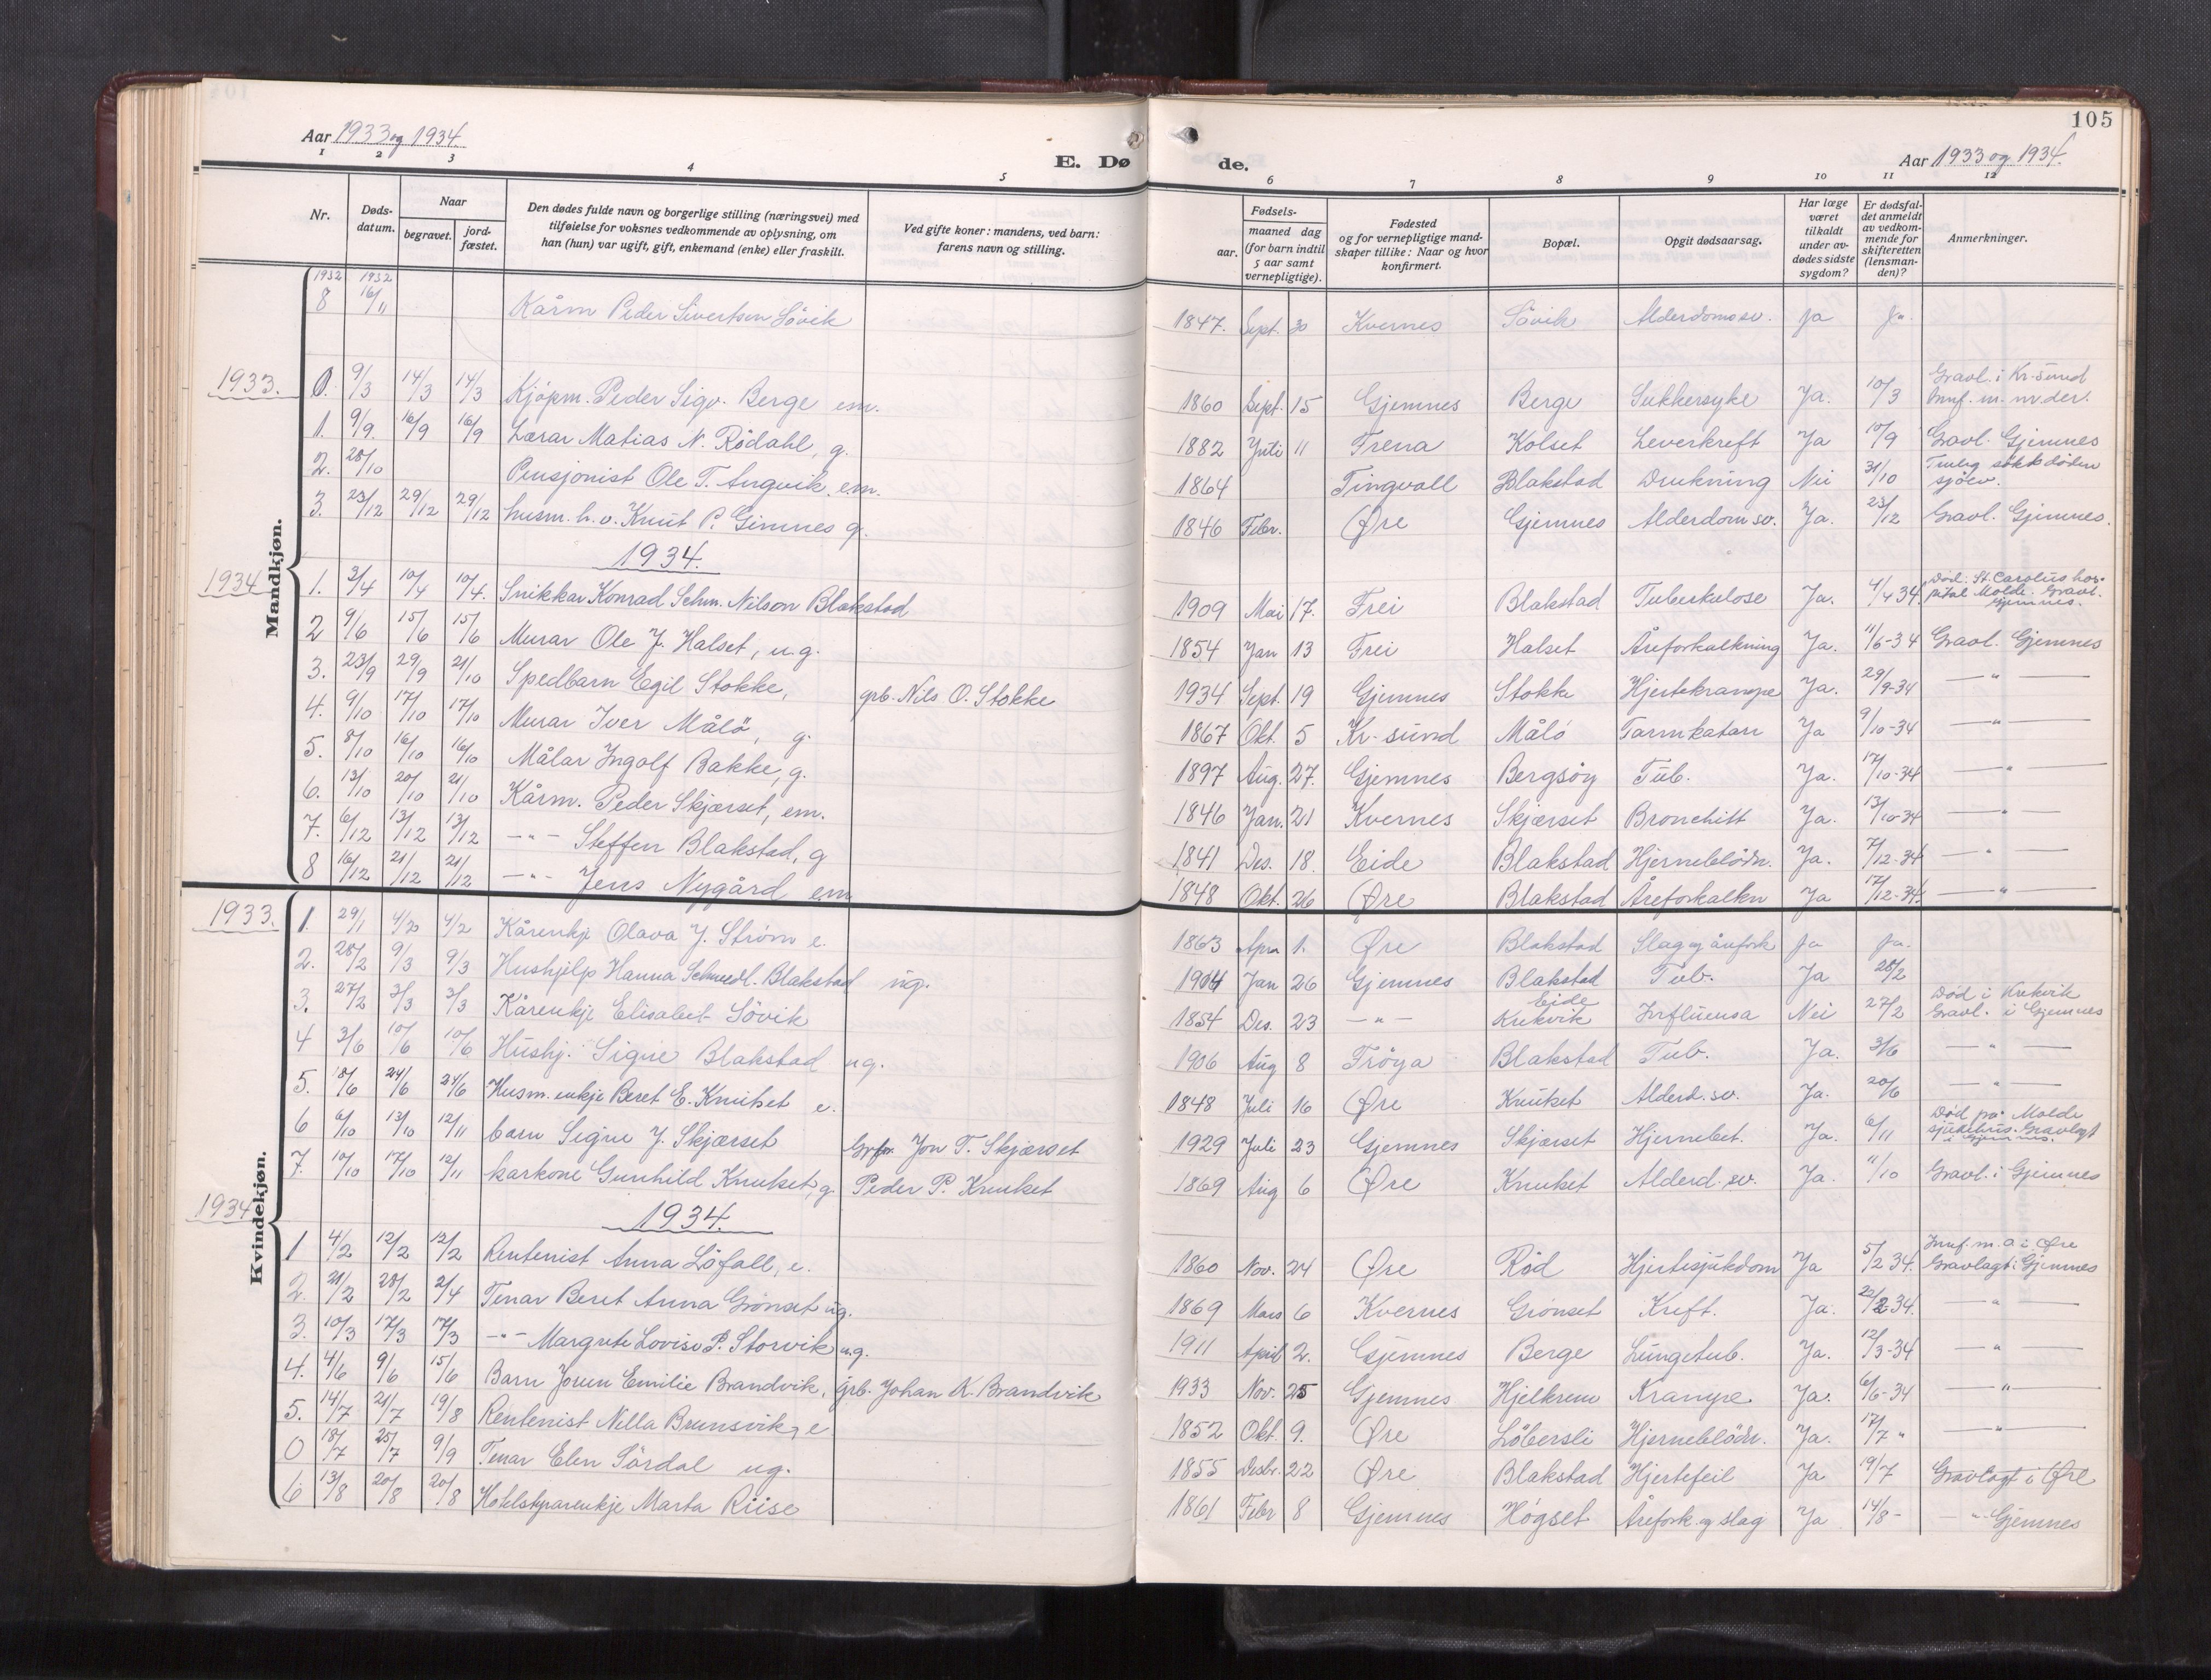 105
Aar 1933 og 1934.
E. Døde.
Aar 1933 og 1934.
1 2 3 4 5 6 7 8 9 10 11 12
Nr.
Døds-datum.
Naar
begravet.
jord-fæstet.
Den dødes fulde navn og borgerlige stilling (næringsvei) med
tilføielse for voksnes vedkommende av oplysning, om
han (hun) var ugift, gift, enkemand (enke) eller fraskilt.
Ved gifte koner: mandens, ved barn:
farens navn og stilling.
Fødsels-
aar.
maaned dag
(for barn indtil
5 aar samt
vernepligtige).
Fødested
og for vernepligtige mand-
skaper tillike: Naar og hvor
konfirmert.
Bopæl.
Opgit dødsaarsag.
Har læge
været
tilkaldt
under av-
dødes sidste
sygdom?
Er dødsfal-
det anmeldt
av vedkom-
mende for
skifteretten
(lensman-
den)?
Anmerkninger.
Mandkjøn.
1932 1932
8 16/11 Kårm Peder Sivertsen Søvik 1847. Sept. 30 Kvernes Søvik Alderdomssv. Ja Ja.
1933.
0. 9/3 14/3 14/3 Kjøpm. Peder Sigv. Berge em. 1860 Sept. 15 Gjemnes Berge Sukkersyke Ja. 10/3 Gravl. i Kr-sund
1. 9/9. 16/9 16/9 Lærar Matias N. Rødahl, g. 1882 Juli 11 Frena Kolset Leverkreft Ja 10/9 Gravl. Gjemnes
2. 28/10 Pensjonist Ole T. Angvik. em. 1864 Tingvoll Blakstad Drukning Nei 31/10 døden sjøev.
3. 23/12 29/12 29/12 husm. h.v. Knut P. Gimnes g. 1846 Febr. Øre Gjemnes Alderdom sv. Ja. 23/12 Gravl. Gjemnes.
1934.
1934
1. 3/4 10/4 10/4. Snikkar Konrad Schm. Nilson Blakstad 1909 Mai 17. Frei Blakstad Tuberkulose Ja. 4/4 34. Død. St. Carolus hos-pital Molde. Gravl. Gjemnes.
2 9/6 15/6 15/6 Murar Ole J. Halset, u.g. 1854 Jan 13 Frei Halset Åreforkalkning Ja. 11/6-34 Gravl. Gjemnes
3. 23/9 29/9 21/10 Spedbarn Egil Stokke, grb. Nils O. Stokke 1934 Sept. 19 Gjemnes Stokke Hjertekrampe Ja. 29/9-34 — " —
4. 9/10 17/10 17/10 Murar Iver Målø, g. 1867 Okt. 5 Kr-sund Målö Tarmkatarr Ja 9/10-34 — " —
5. 8/10 16/10 16/10 Målar Ingolf Bakke, g. 1897 Aug. 27. Gjemnes Bergsøy Tub. Ja. 17/10-34 — " —
6. 13/10 20/10 21/10 Kårm. Peder Skjærset, em. 1846 Jan. 21 Kvernes Skjærset Bronchitt Ja. 13/10-34 — " —
7. 6/12 13/12 13/12 — " — Steffen Blakstad, g 1841 Des. 18. Eide Blakstad Hjerneblödn. Ja. 7/12-34 — " —
8 16/12 21/12 21/12 — " — Jens Nygård em 1848 Okt. 26 Øre Blakstad Åreforkalkn Ja 17/12-34. — " —
Kvindekjøn.
1933.
1. 29/1 4/2 4/2 Kårenkje Olava J. Strøm e. 1863 Apr. 1. Øre Blakstad Slag og Ja Ja.
2. 28/2 9/3 9/3 Hushjelp Hanna Blakstad ug. 1904 Jan 26 Gjemnes Blakstad Tub. Ja 28/2
3. 27/2 3/3 3/3 Kårenkje Elisabet Sövik 1854 Des. 23 — " — Eide Krekvik Influensa Nei 27/2 Død i Krekvik Gravl. i Gjemnes
4 3/6 10/6 10/6 Hushj. Signe Blakstad ug. 1906 Aug 8 Frøya Blakstad Tub. Ja. 3/6 — " —
5. 18/6 24/6 24/6 Husm. enkje Beret E. Knutset e. 1848 Juli 16 Øre Knutset Alderd. sv. Ja. 20/6 — " —
6 6/10 13/10 12/11 barn Signe J. Skjærset Jon T. Skjærset 1929 Juli 23 Gjemnes Skjærset Hjernebet. Ja. 6/11 Død på Molde sjukehus. Gravlagt i Gjemnes.
7. 10/10 17/10 12/11 karkone Gunhild Knutset, g. Peder P. Knutset 1869 Aug 6 Øre Knutset Alderd. sv. Ja. 11/10 Gravl. i Gjemnes
1934
1934.
1 4/2 12/2 12/2 Rentenist Anna Löfall, e. 1860 Nov. 24 Øre Rød Hjertesjukdom Ja 5/2 34. Innf. m. a i Øre Gravlagt i Gjemnes
2. 21/2 28/2 2/4 Tenar Beret Anna Grønset ug. 1869 Mars 6 Kvernes Grønset Kreft. Ja. 22/2-34. — " —
3. 10/3 17/3 17/3 — " — Margrete Lovise P. Storvik ug. 1911 April 2. Gjemnes Berge Lungetub. Ja. 12/3-34 — " —
4. 4/6 9/6 15/6 Barn Jorun Emilie Brandvik, grb. Johan K. Brandvik 1933 Nov. 25 Gjemnes Hjelkrem Krampe. Ja. 6/6-34 — " —
5. 14/7 21/7 19/8 Rentenist Nella Brunsvik, e 1852 Okt. 9. Øre Löbersli Hjerneblödn. Ja. 17/7 " — " —
0 18/7 25/7 9/9 Tenar Elen Sördal ug. 1855 Desbr. 22 Øre Blakstad Hjertefeil Ja 19/7 Gravlagt i Øre
6 13/8 20/8 20/8 Hotelstyrarenkje Marta Riise 1861 Febr 8 Gjemnes Høgset Årefork. og slag Ja 14/8 - — " — Gjemnes